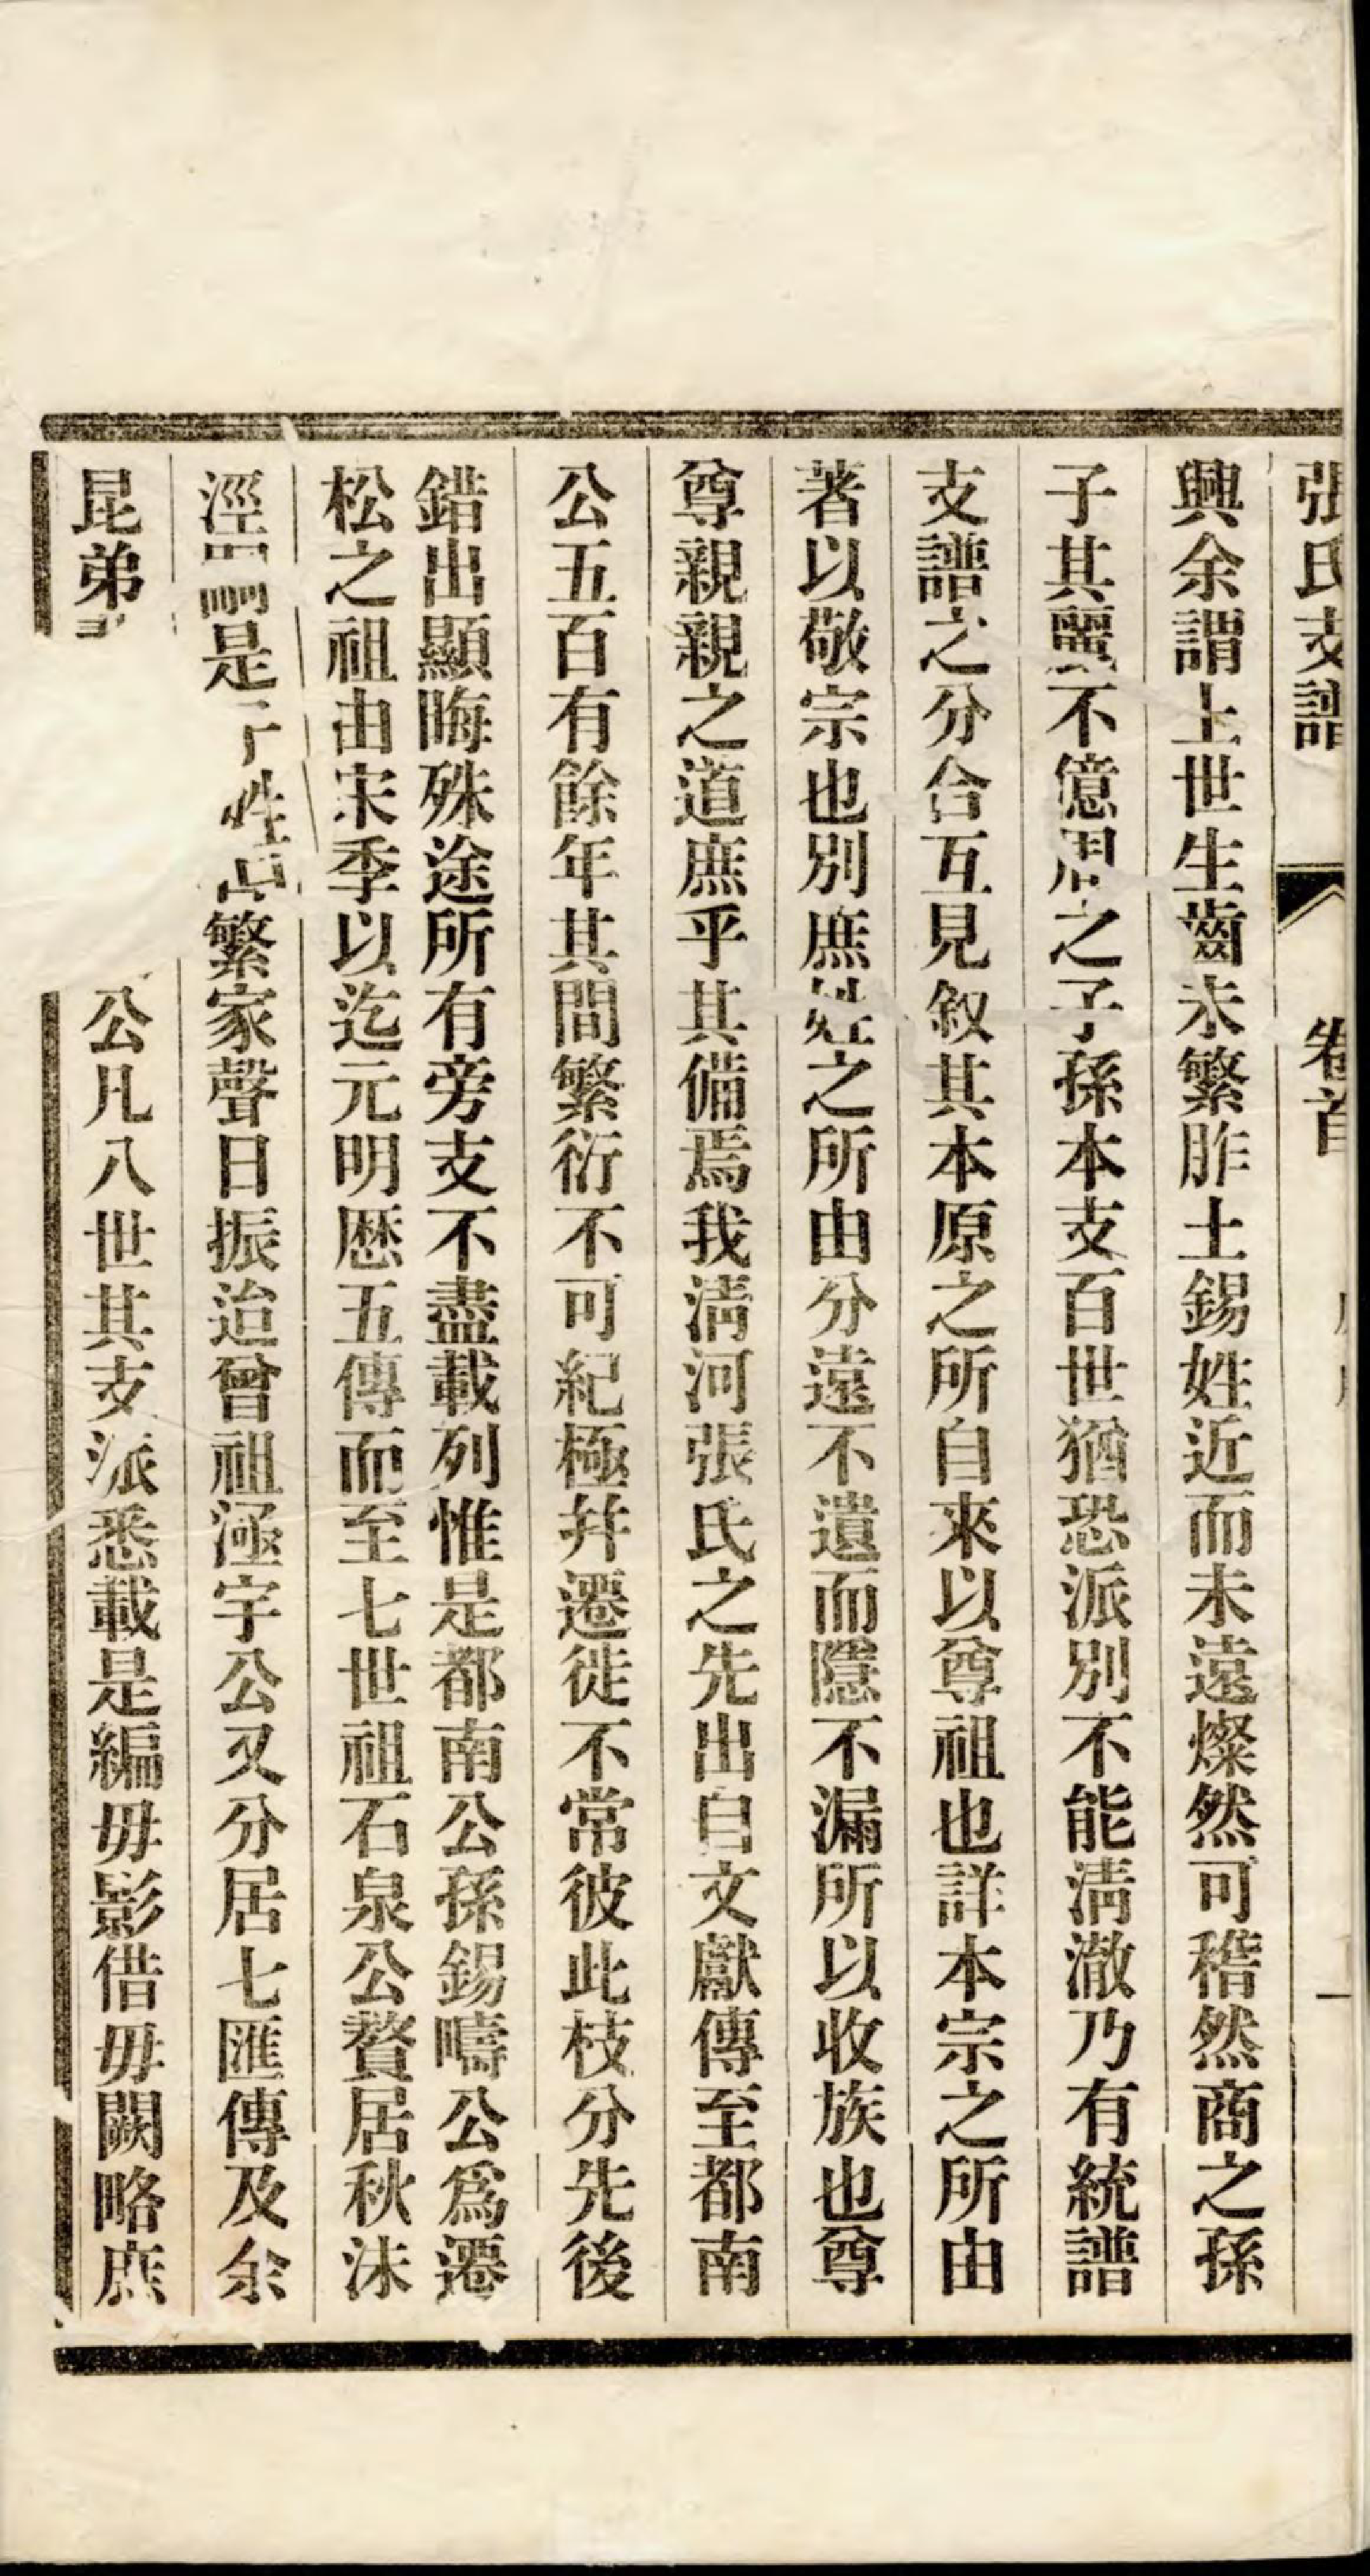 張氏支譜 卷首 一
興余謂上世生齒未繁胙土錫姓近而未遠燦然可稽然商之孫
子其麗不億周之子孫本支百世猶恐派別不能淸澈乃有統譜
支譜之分合互見叙其本原之所自來以尊祖也詳本宗之所由
著以敬宗也別庶姓之所由分遠不遺而隱不漏所以收族也尊
尊親親之道庶乎其備焉我淸河張氏之先出自文獻傳至都南
公五百有餘年其間繁衍不可紀極幷遷徙不常彼此枝分先後
錯出顯晦殊途所有旁支不盡載列惟是都南公孫錫疇公爲遷
松之祖由宋季以迄元明歷五傳而至七世祖石泉公贅居秋沬
涇 是 姓 繁家聲日振迨曾祖溼宇公又分居七匯傳及余
昆弟 公凡八世其支派悉載是編毋影借毋闕略庶